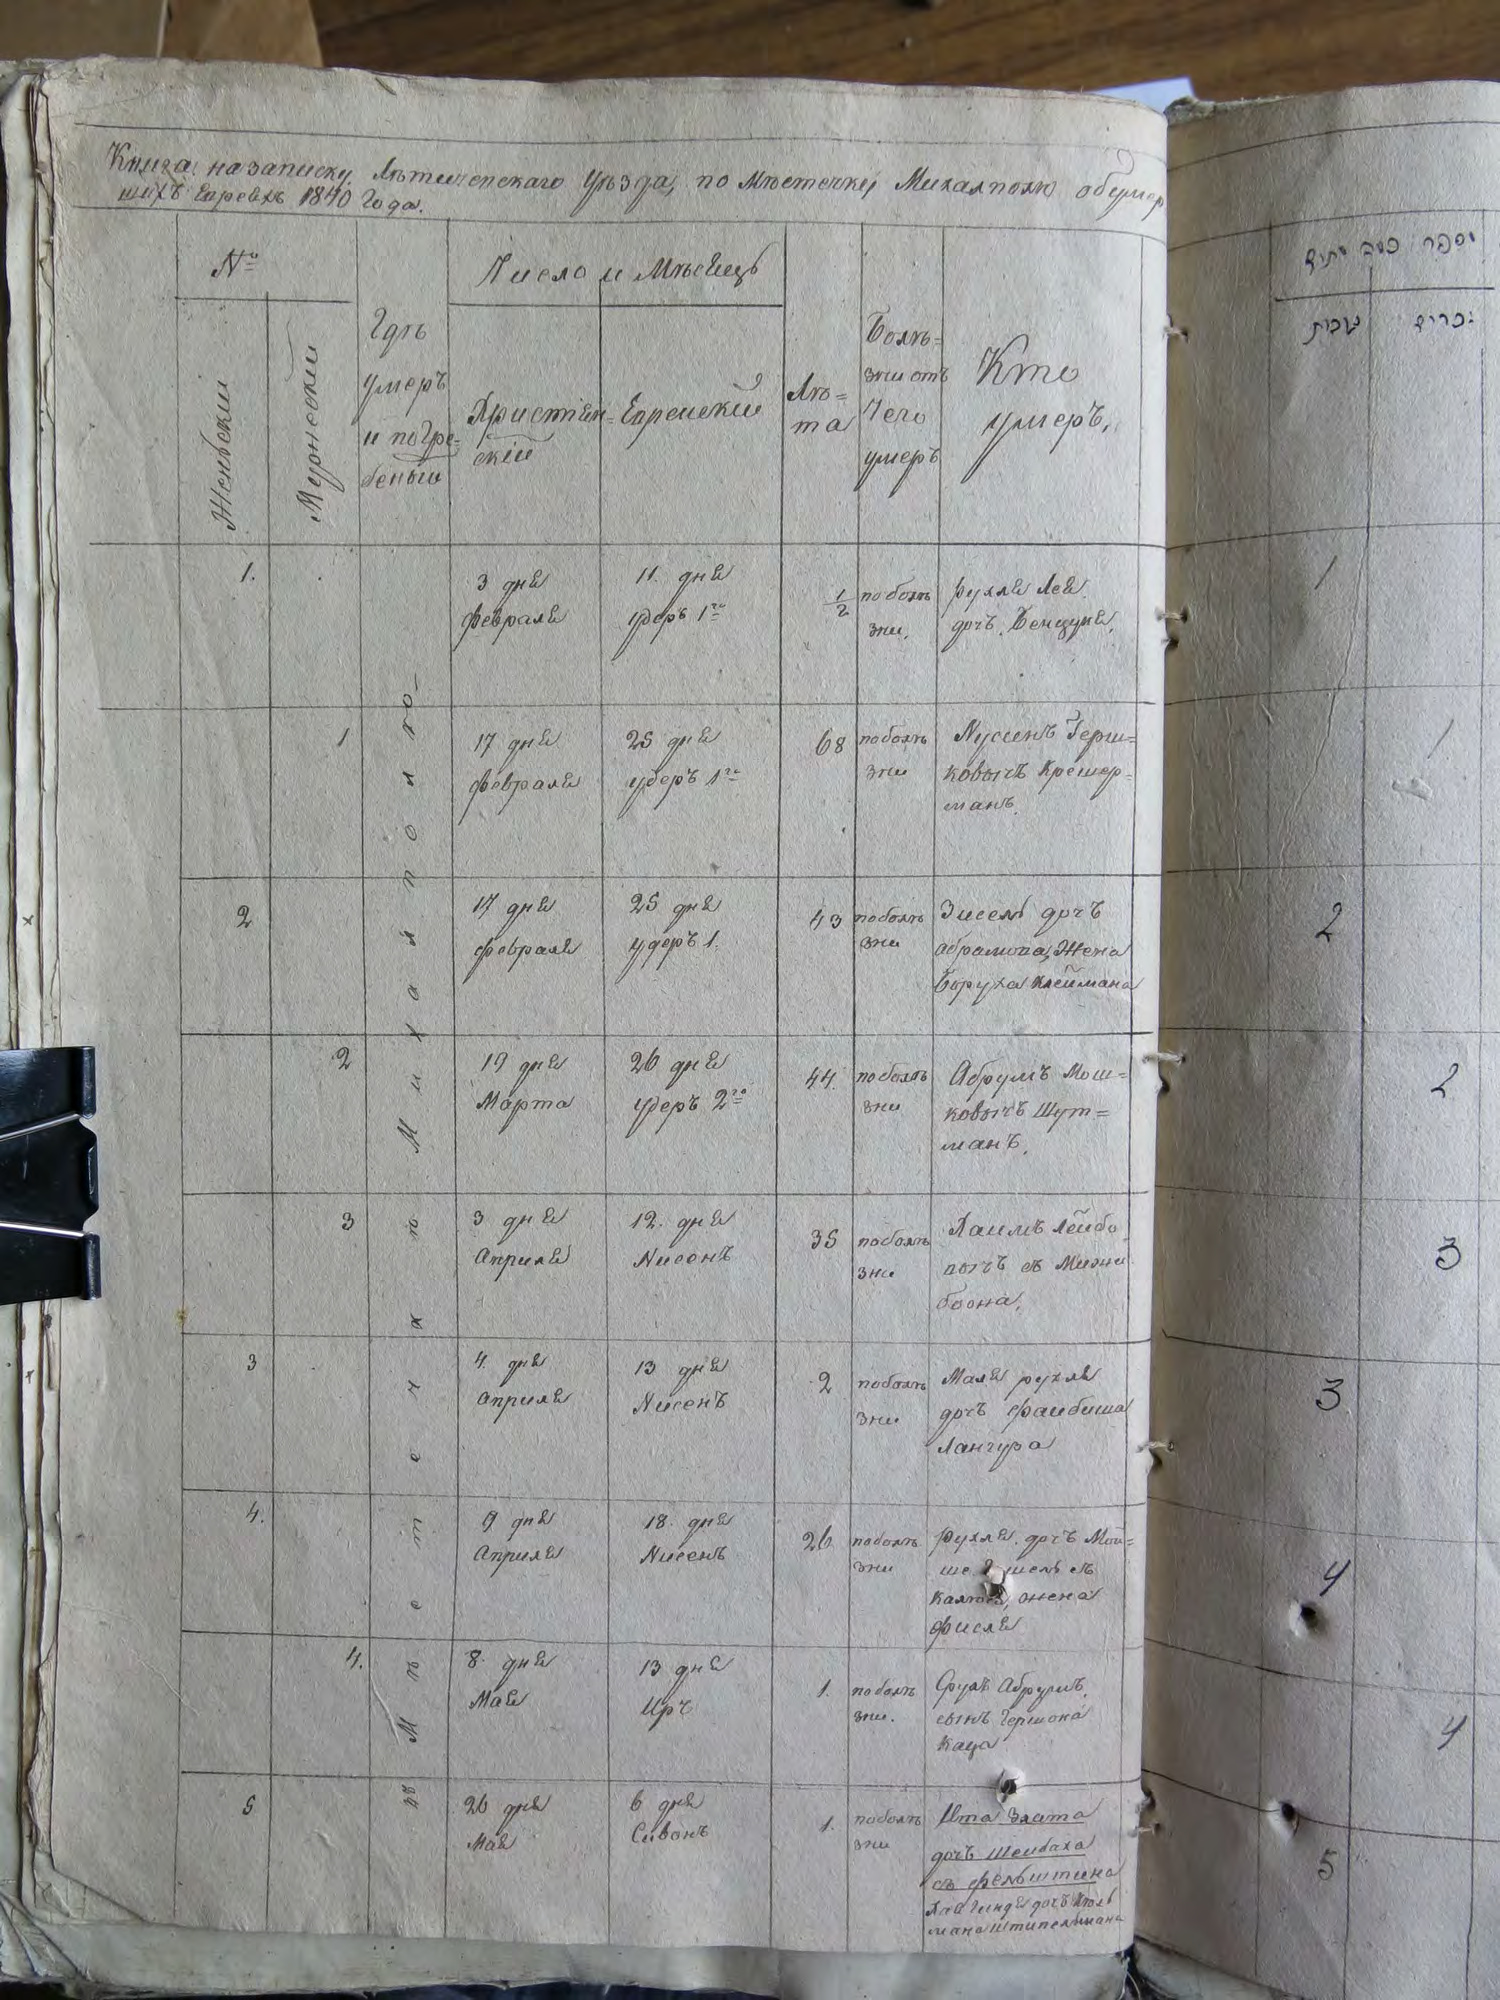 Книга на записку Лѣтичевскаго уѣзда, по мѣстечку Михалполю обумер
шихъ Евреяхъ 1840 года.
№
Женьски
Мужескій
Гдѣ
умеръ
и погре=
беный
Число и Мѣсяцъ
Христіян=
скій
Еврейскій
Лѣ=
та
Болѣ=
зни отъ
чего
умеръ
Кто
умеръ,
Въ Мѣстечкѣ Михалполѣ
1.
3 дня
февраля
11. дня
удеръ 1го
1/2
по болѣ
зни,
рухля Лея
дочь
1
17 дня
февраля
25 дня
удеръ 1го
68
по болѣ
зни
Нусинъ Герш=
ковычъ Крешер=
манъ.
2
17 дня
февраля
25 дня
удеръ 1.
43
по болѣ
зни
Зисель дочъ
абрамова, Жена
Боруха Клеймана
2
19 дня
Марта
26 дня
удеръ 2го
44.
по болѣ
зни
Абрумъ Мош=
ковычъ Шут=
манъ.
3
3 дня
Апрыля
12. дня
Нисенъ
35
по болѣ
зни
Хаимъ Лейбо
вычъ съ Межи
божа.
3
4. дня
Апрыля
13 дня
Нисенъ
2
по болѣ
зни
Маля рухля
дочъ файбиша
Лангура
4.
9 дня
Апрыля
18. дня
Нисенъ
26
по болѣ
зни
Рухля. дочъ Мой=
ше съ
жена
фисля
4.
8. дня
Мая
13 дня
Иръ
1.
по болѣ
зни.
Сруль Абрумъ,
сынъ Гершона
Каца
5
26 дня
Мая
6 дня
Сивонъ
1.
по болѣ
зни
Ита Злата
дочъ
съ фельштина
дочъ
мана Штипельмана
1
1
2
2
3
3
4
4
5